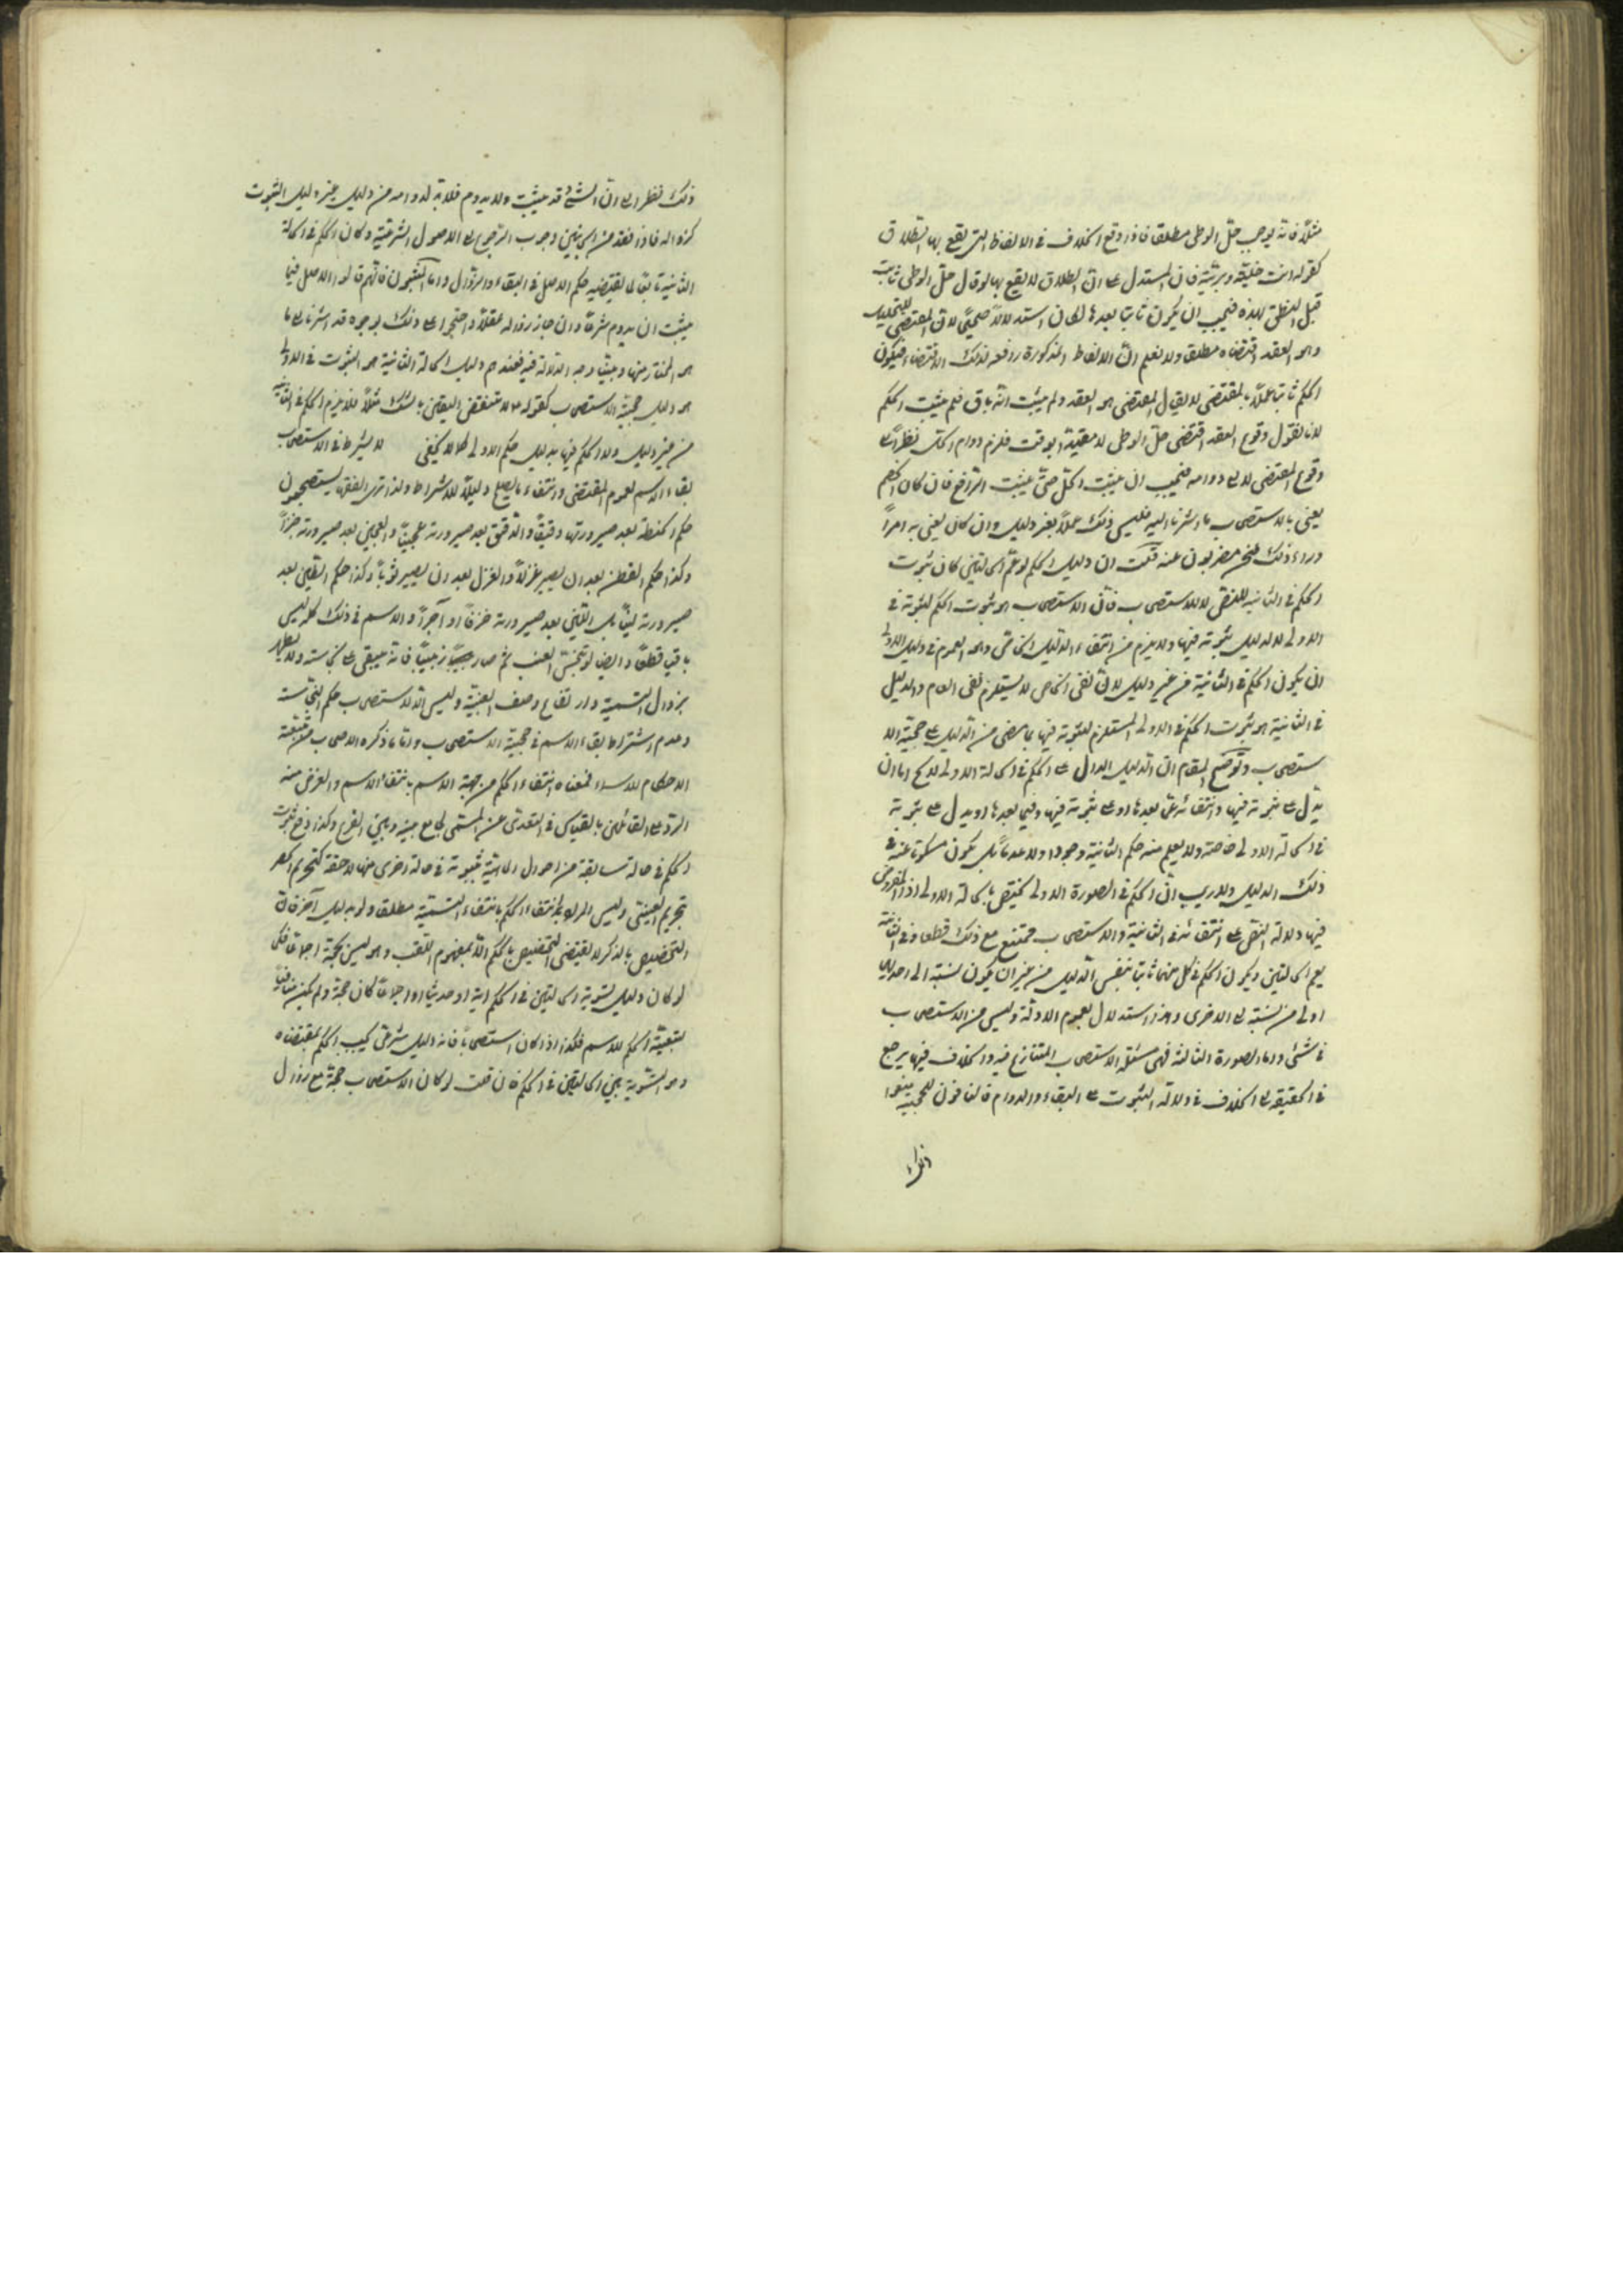 مثلا فانه يوجب حل الوطى مطلقا فاذا وقع الخلاف فى الالفاظ التى يقع بها الطلاق
كقوله انت خلية وبرئية فان المستدل على ان الطلاق لا يقع بها لو قال حل الوطى ثابت
قبل النطق بهذه فيجب ان يكون ثابتا بعدها لكان استدلالا صحيحا لان المقتضى للتحليل
وهو العقد اقتضاه مطلقا ولا نعلم ان الالفاظ المذكورة رافعه لذلك الاقتضاء فيكون
الحكم ثابتا عملا بالمقتضى لا يقال المقتضى هو العقد ولم يثبت انه باق فلم يثبت الحكم
لانا نقول وقوع العقد اقتضى حل الوطى لا مقيدا بوقت فلزم دوام الحل نظرا الى
وقوع المقتضى لا الى دوامه فيجب ان يثبت الحل حتى يثبت الرافع فان كان الخصم
يعنى بالاستصحاب ما اشرنا اليه فليس ذلك عملا بغير دليل وان كان يعنى به امرا
وراء ذلك فنحن مضربون عنه قلت ان دليل الحكم لو عم الحالتين كان ثبوت
الحكم فى الثانيه للنص لا للاستصحاب فان الاستصحاب هو ثبوت الحكم لثبوته فى
الاولى لا لدليل ثبوته فيها ولا يلزم من انتفاء الدليل الخاص وهو العموم فى دليل الاولى
ان يكون الحكم فى الثانية من غير دليل لان نفى الخاص لا يستلزم نفى العام والدليل
فى الثانية هو ثبوت الحكم فى الاولى المستلزم لثبوته فيها بما مضى من الدليل على حجية الا
ستصحاب وتوضيح المقام ان الدليل الدال على الحكم فى الحالة الاولى لا يخ اما ان
يدل على ثبوته فيها وانتفائه عما بعدها او على ثبوته فيها وفيما بعدها او يدل على ثبوته
فى الحالة الاولى خاصة ولا يعلم منه حكم الثانية وجودا ولا عدما بل يكون مسكوتا عنه فى
ذلك الدليل ولا ريب ان الحكم فى الصورة الاولى يختص بالحالة الاولى اذ المفروض
فيها دلالة النص على انتفائه فى الثانية والاستصحاب ممتنع مع ذلك قطعا وفى الثانية
يعم الحالتين ويكون الحكم فى كل منهما ثابتا بنفس الدليل من غير ان يكون نسبته الى احديهما
اولى من نسبته الى الاخرى وهذا استدلال بعموم الادلة وليس من الاستصحاب
فى شئ واما الصورة الثالثة فهى مسئلة الاستصحاب المتنازع فيه والخلاف فيها يرجع
فى الحقيقة الى الخلاف فى دلالة الثبوت على البقاء والدوام فالنافون للحجية منعوا
ذلك
ذلك نظرا الى ان الشئ قد يثبت ولا يدوم فلا بد لدوامه من دليل غير دليل الثبوت
كزواله فاذا فقد من الجانبين وجب الرجوع الى الاصول الشرعية وكان الحكم فى الحالة
الثانية تابعا لما يقتضيه حكم الاصل فى البقاء والزوال واما المثبتون فانهم قالوا الاصل فيما
يثبت ان يدوم شرعا وان جاز زواله عقلا واحتجوا على ذلك بوجوه قد اشرنا الى ما
هو المختار منها وبينا وجه الدلالة فيه فعندهم دليل الحالة الثانية هو الثبوت فى الاولى
هو دليل حجية الاستصحاب كقوله ع لا تنقض اليقين بالشك مثلا فلا يلزم الحكم فى الثانية
من غير دليل ولا الحكم فيها بدليل حكم الاولى كما لا يخفى لا يشترط فى الاستصحاب
بقاء الاسم لعموم المقتضى وانتفاء ما يصلح دليلا للاشتراط ولذا ترى الفقهاء يستصحبون
حكم الحنطة بعد صيرورتها دقيقا والدقيق بعد صيرورته عجينا والعجين بعد صيرورته خبزا
وكذا حكم القطن بعد ان يصير غزلا والغزل بعد ان يصير ثوبا وكذا حكم الطين بعد
صيرورته لبنا بل اللبن بعد صيرورته خزفا او آجرا والاسم فى ذلك كله ليس
باقيا قطعا وايضا لو تنجس العنب ثم صار زبيبا فانه يبقى على نجاسته ولا يطهر
بزوال التسمية وارتفاع وصف العنبية وليس الا لاستصحاب حكم النجاسة
وعدم اشتراط بقاء الاسم فى حجية الاستصحاب واما ما ذكره الاصحاب من تبعية
الاحكام للاسماء فمعناه انتفاء الحكم من جهة الاسم بانتفاء الاسم والغرض منه
الرد على القائلين بالقياس فى التعدى عن المسمى لجامع بينه وبين الفرع وكذا دفع ثبوت
الحكم فى حالة سابقة من احوال الماهية ثبوته فى حالة اخرى منها لاحقة كتحريم العصر
بتحريم العنب وليس المراد انتفاء الحكم بانتفاء التسمية مطلقا ولو بدليل آخر فان
التخصيص بالذكر لا يقتضى التخصيص بالحكم الا بمفهوم اللقب وهو ليس بحجة اجماعا فكما
لو كان دليل تسوية الحالتين فى الحكم اية او حديثا او اجماعا كان حجة ولم يكن منافيا
لتبعية الحكم للاسم فكذا اذا كان استصحابا فانه دليل شرعى يجب الحكم بمقتضاه
وهو التسوية بين الحالتين فى الحكم فان قلت لو كان الاستصحاب حجة مع زوال